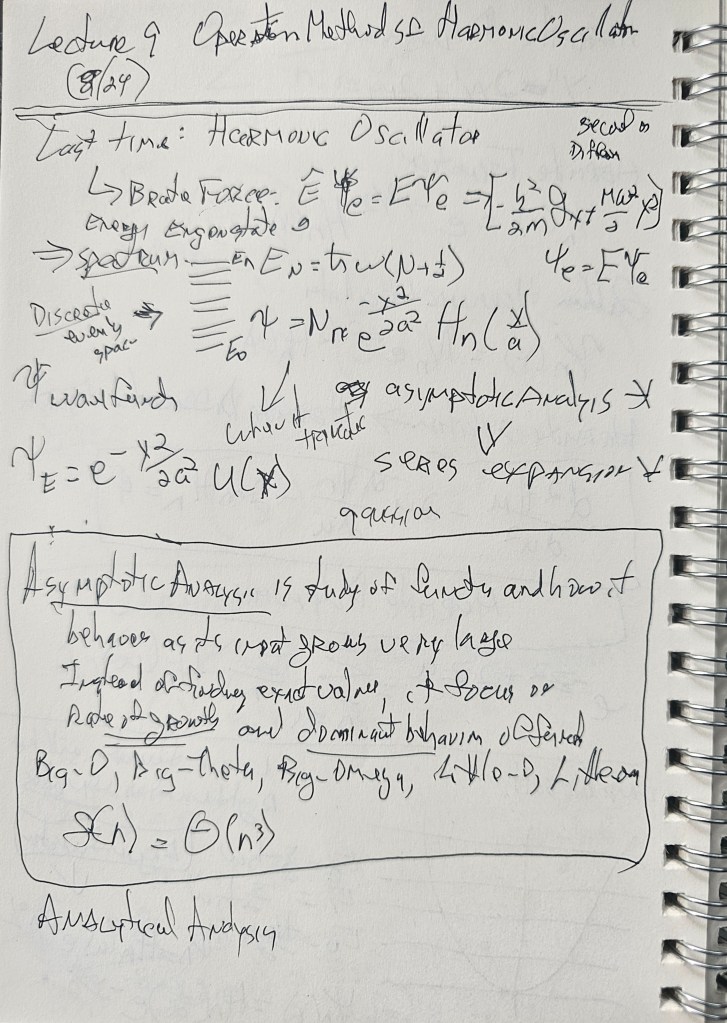 Lecture 9 Operation Methods Harmonic Oscillator
(9/24)
Last time: Harmonic Oscillator
Second
↳ Brute Force: Ê Ψe = EΨe = [-ħ²/2m ∂xx + mω²/2 x²]
Energy Eigenstate
Ψe = EΨe
⇒ spectrum En EN = ħω(N+½)
Discrete evenly space E0 Ψ = Nn e^(-x²/2a²) Hn(x/a)
Ψ wavefunch
asymptotic Analysis *
ΨE = e^(-x²/2a²) U(x) series expansion *
gaussian
Asymptotic Analysis is study of functn and how it
behaves as its input grows very large
Instead of finding exact value, it focus on
Rate of growth and dominant behavior of
Big-O, Big-Theta, Big-Omega, Little-O, Little
f(n) = Θ(n³)
Analytical Analysis